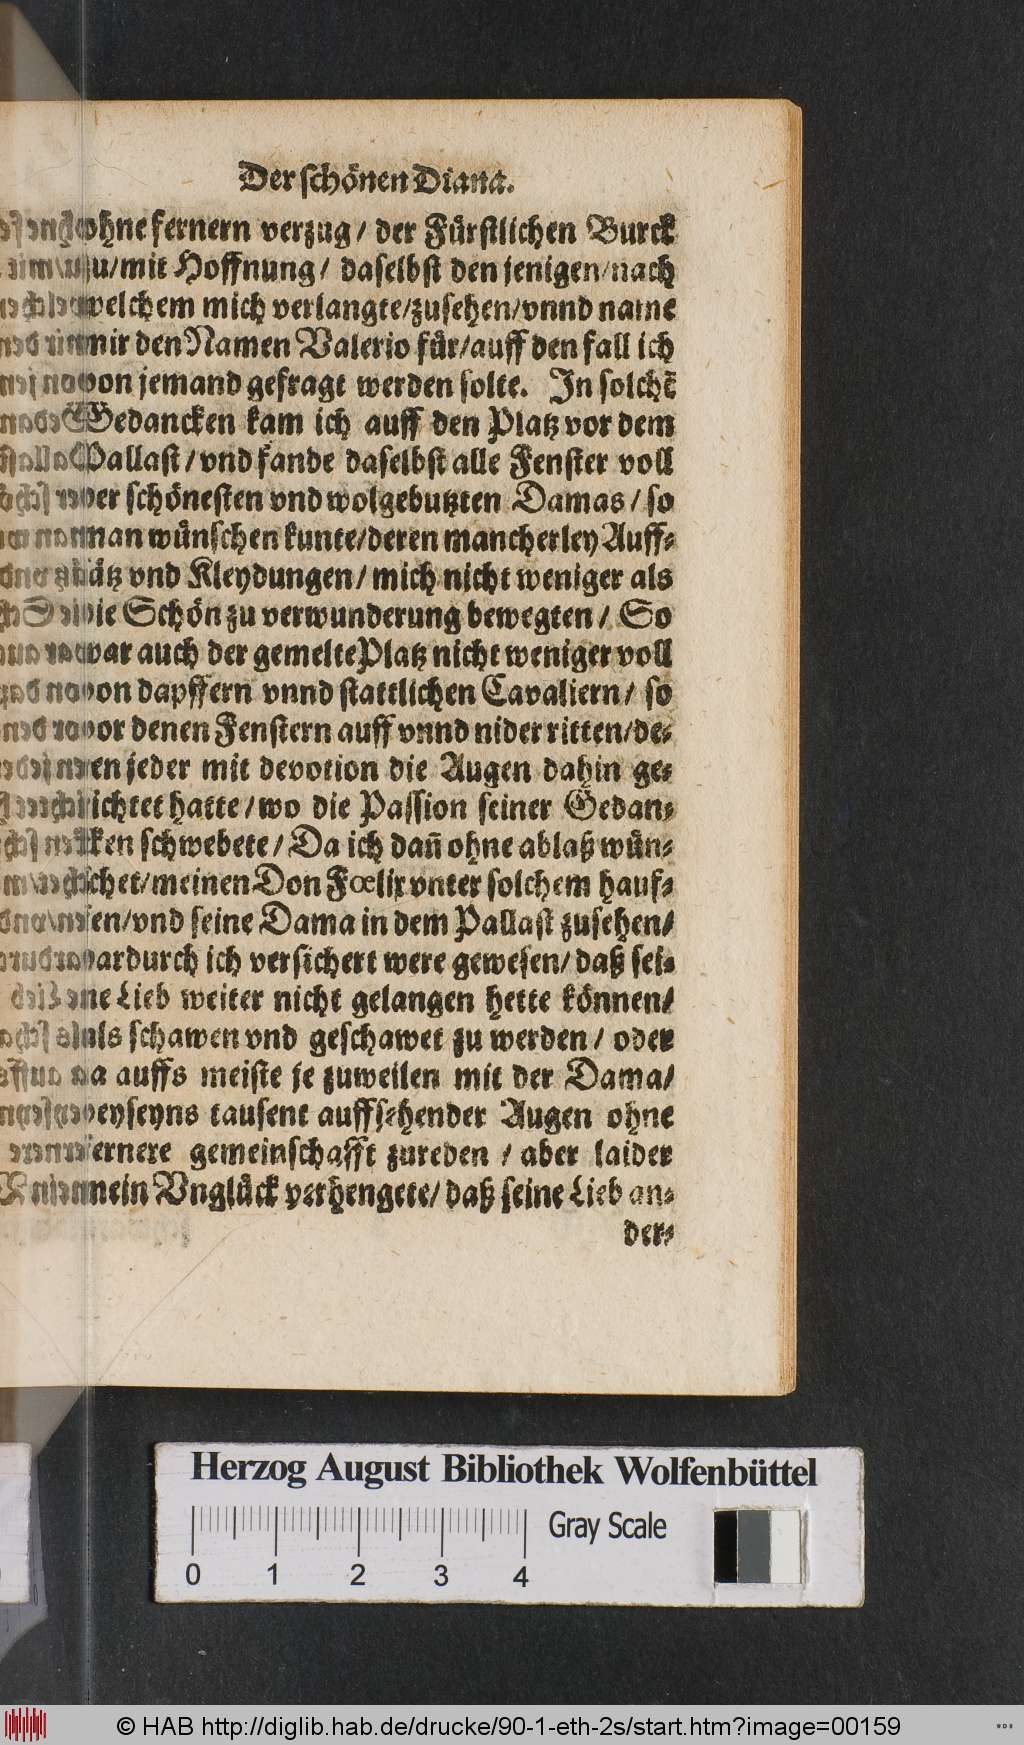 Der schönen Diana.
ohne fernern verzug / der Fürstlichen Burck
zu / mit Hoffnung / daselbst den jenigen / nach
welchem mich verlangte / zusehen / vnnd name
mir den Namen Valerio für / auff den fall ich
von jemand gefragt werden solte. In solchē
Gedancken kam ich auff den Platz vor dem
Pallast / vnd fande daselbst alle Fenster voll
der schönesten vnd wolgebutzten Damas / so
man wünschen kunte / deren mancherley Auff-
sätz vnd Kleydungen / mich nicht weniger als
die Schön zu verwunderung bewegten / So
war auch der gemelte Platz nicht weniger voll
von dapffern vnnd stattlichen Cavaliern / so
vor denen Fenstern auff vnnd nider ritten / de-
ren jeder mit devotion die Augen dahin ge-
richtet hatte / wo die Passion seiner Gedan-
cken schwebete / Da ich dañ ohne ablaß wün-
schet / meinen Don Fœlix vnter solchem hauf-
fen / vnd seine Dama in dem Pallast zusehen /
dardurch ich versichert were gewesen / daß sei-
ne Lieb weiter nicht gelangen hette können /
als schawen vnd geschawet zu werden / oder
da auffs meiste je zuweilen mit der Dama /
beyseyns tausent auffsehender Augen ohne
fernere gemeinschafft zureden / aber laider
mein Vnglück verhengete / daß seine Lieb an-
der-
Herzog August Bibliothek Wolfenbüttel
0 1 2 3 4 Gray Scale
© HAB http://diglib.hab.de/drucke/90-1-eth-2s/start.htm?image=00159